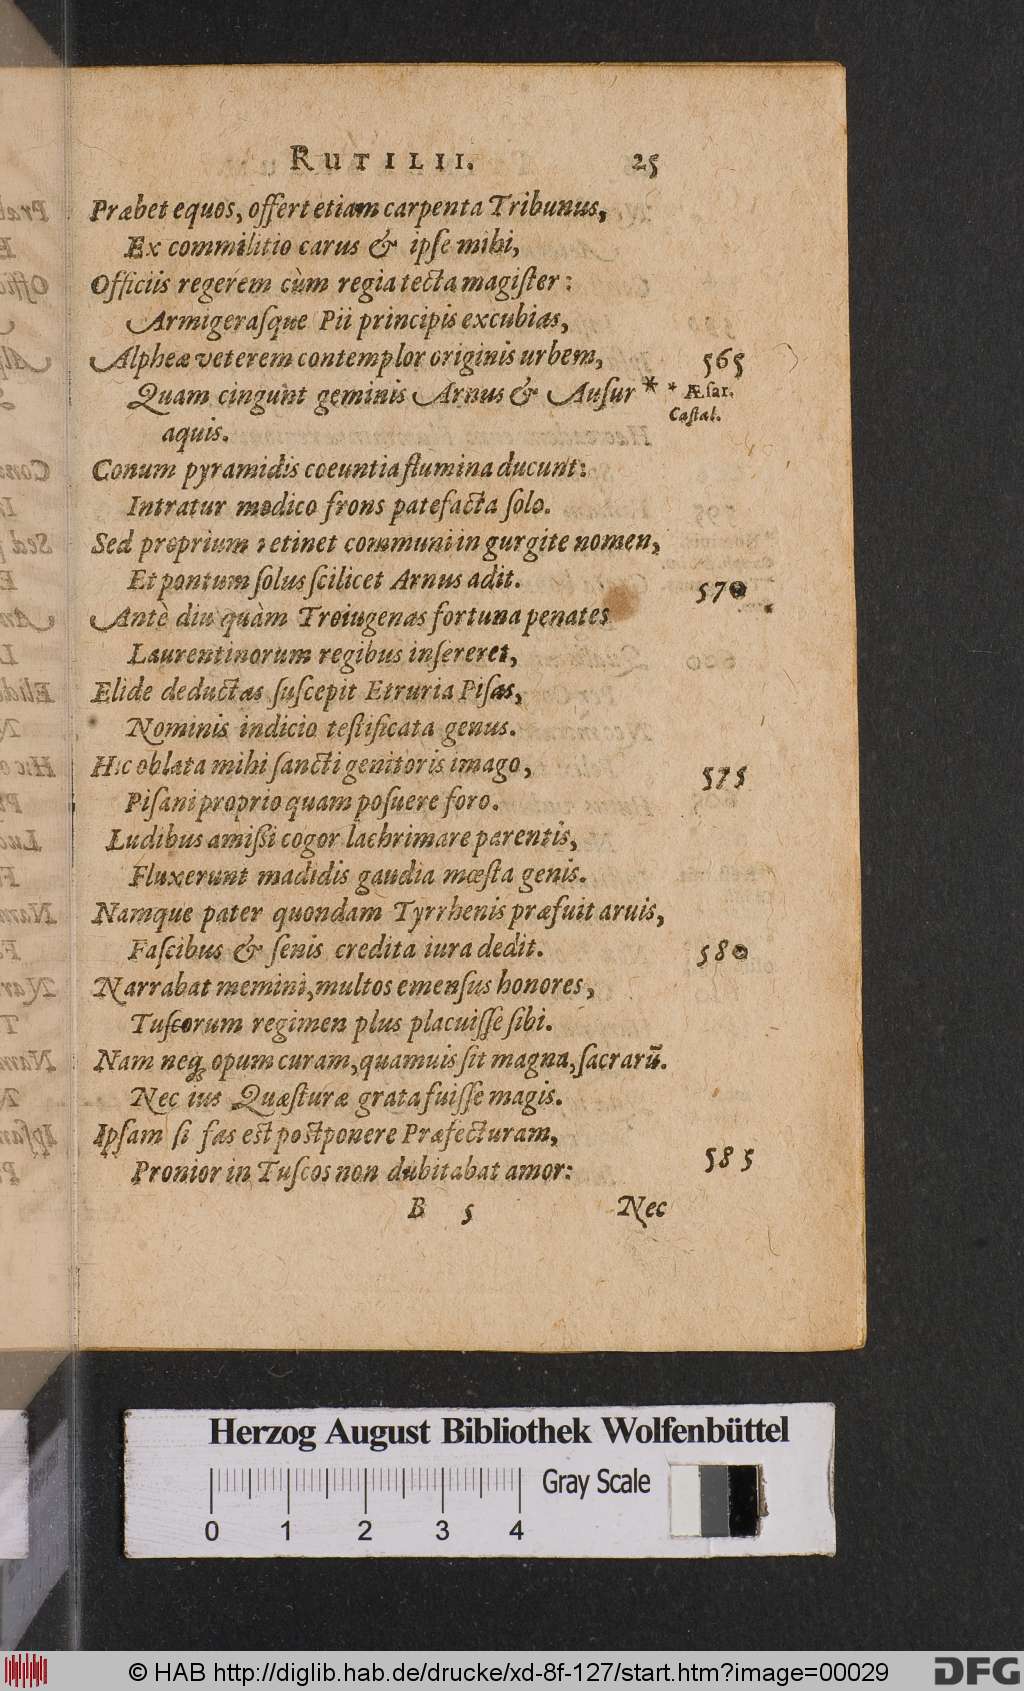 RUTILII. 25
Præbet equos, offert etiam carpenta Tribunus,
Ex commilitio carus & ipſe mihi,
Officiis regerem cùm regia tecta magiſter:
Armigeraſque Pii principis excubias,
Alpheæ veterem contemplor originis urbem, 565
Quam cingunt geminis Arnus & Auſur * * Æſar.
aquis. Caſtal.
Conum pyramidis coeuntia flumina ducunt:
Intratur modico frons patefacta ſolo.
Sed proprium retinet communi in gurgite nomen,
Et pontum ſolus ſcilicet Arnus adit. 570
Antè diu quàm Troiugenas fortuna penates
Laurentinorum regibus inſereret,
Elide deductas ſuſcepit Etruria Piſas,
Nominis indicio teſtificata genus.
Hic oblata mihi ſancti genitoris imago, 575
Piſani proprio quam poſuere foro.
Ludibus amiſſi cogor lachrimare parentis,
Fluxerunt madidis gaudia mœſta genis.
Namque pater quondam Tyrrhenis præfuit aruis,
Faſcibus & ſenis credita iura dedit. 580
Narrabat memini, multos emenſus honores,
Tuſcorum regimen plus placuiſſe ſibi.
Nam neq; opum curam, quamuis ſit magna, ſacrarū.
Nec ius Quæſturæ grata fuiſſe magis.
Ipſam ſi fas eſt poſtponere Præfecturam,
Pronior in Tuſcos non dubitabat amor: 585
B 5 Nec
Herzog August Bibliothek Wolfenbüttel
Gray Scale
0 1 2 3 4
© HAB http://diglib.hab.de/drucke/xd-8f-127/start.htm?image=00029
DFG